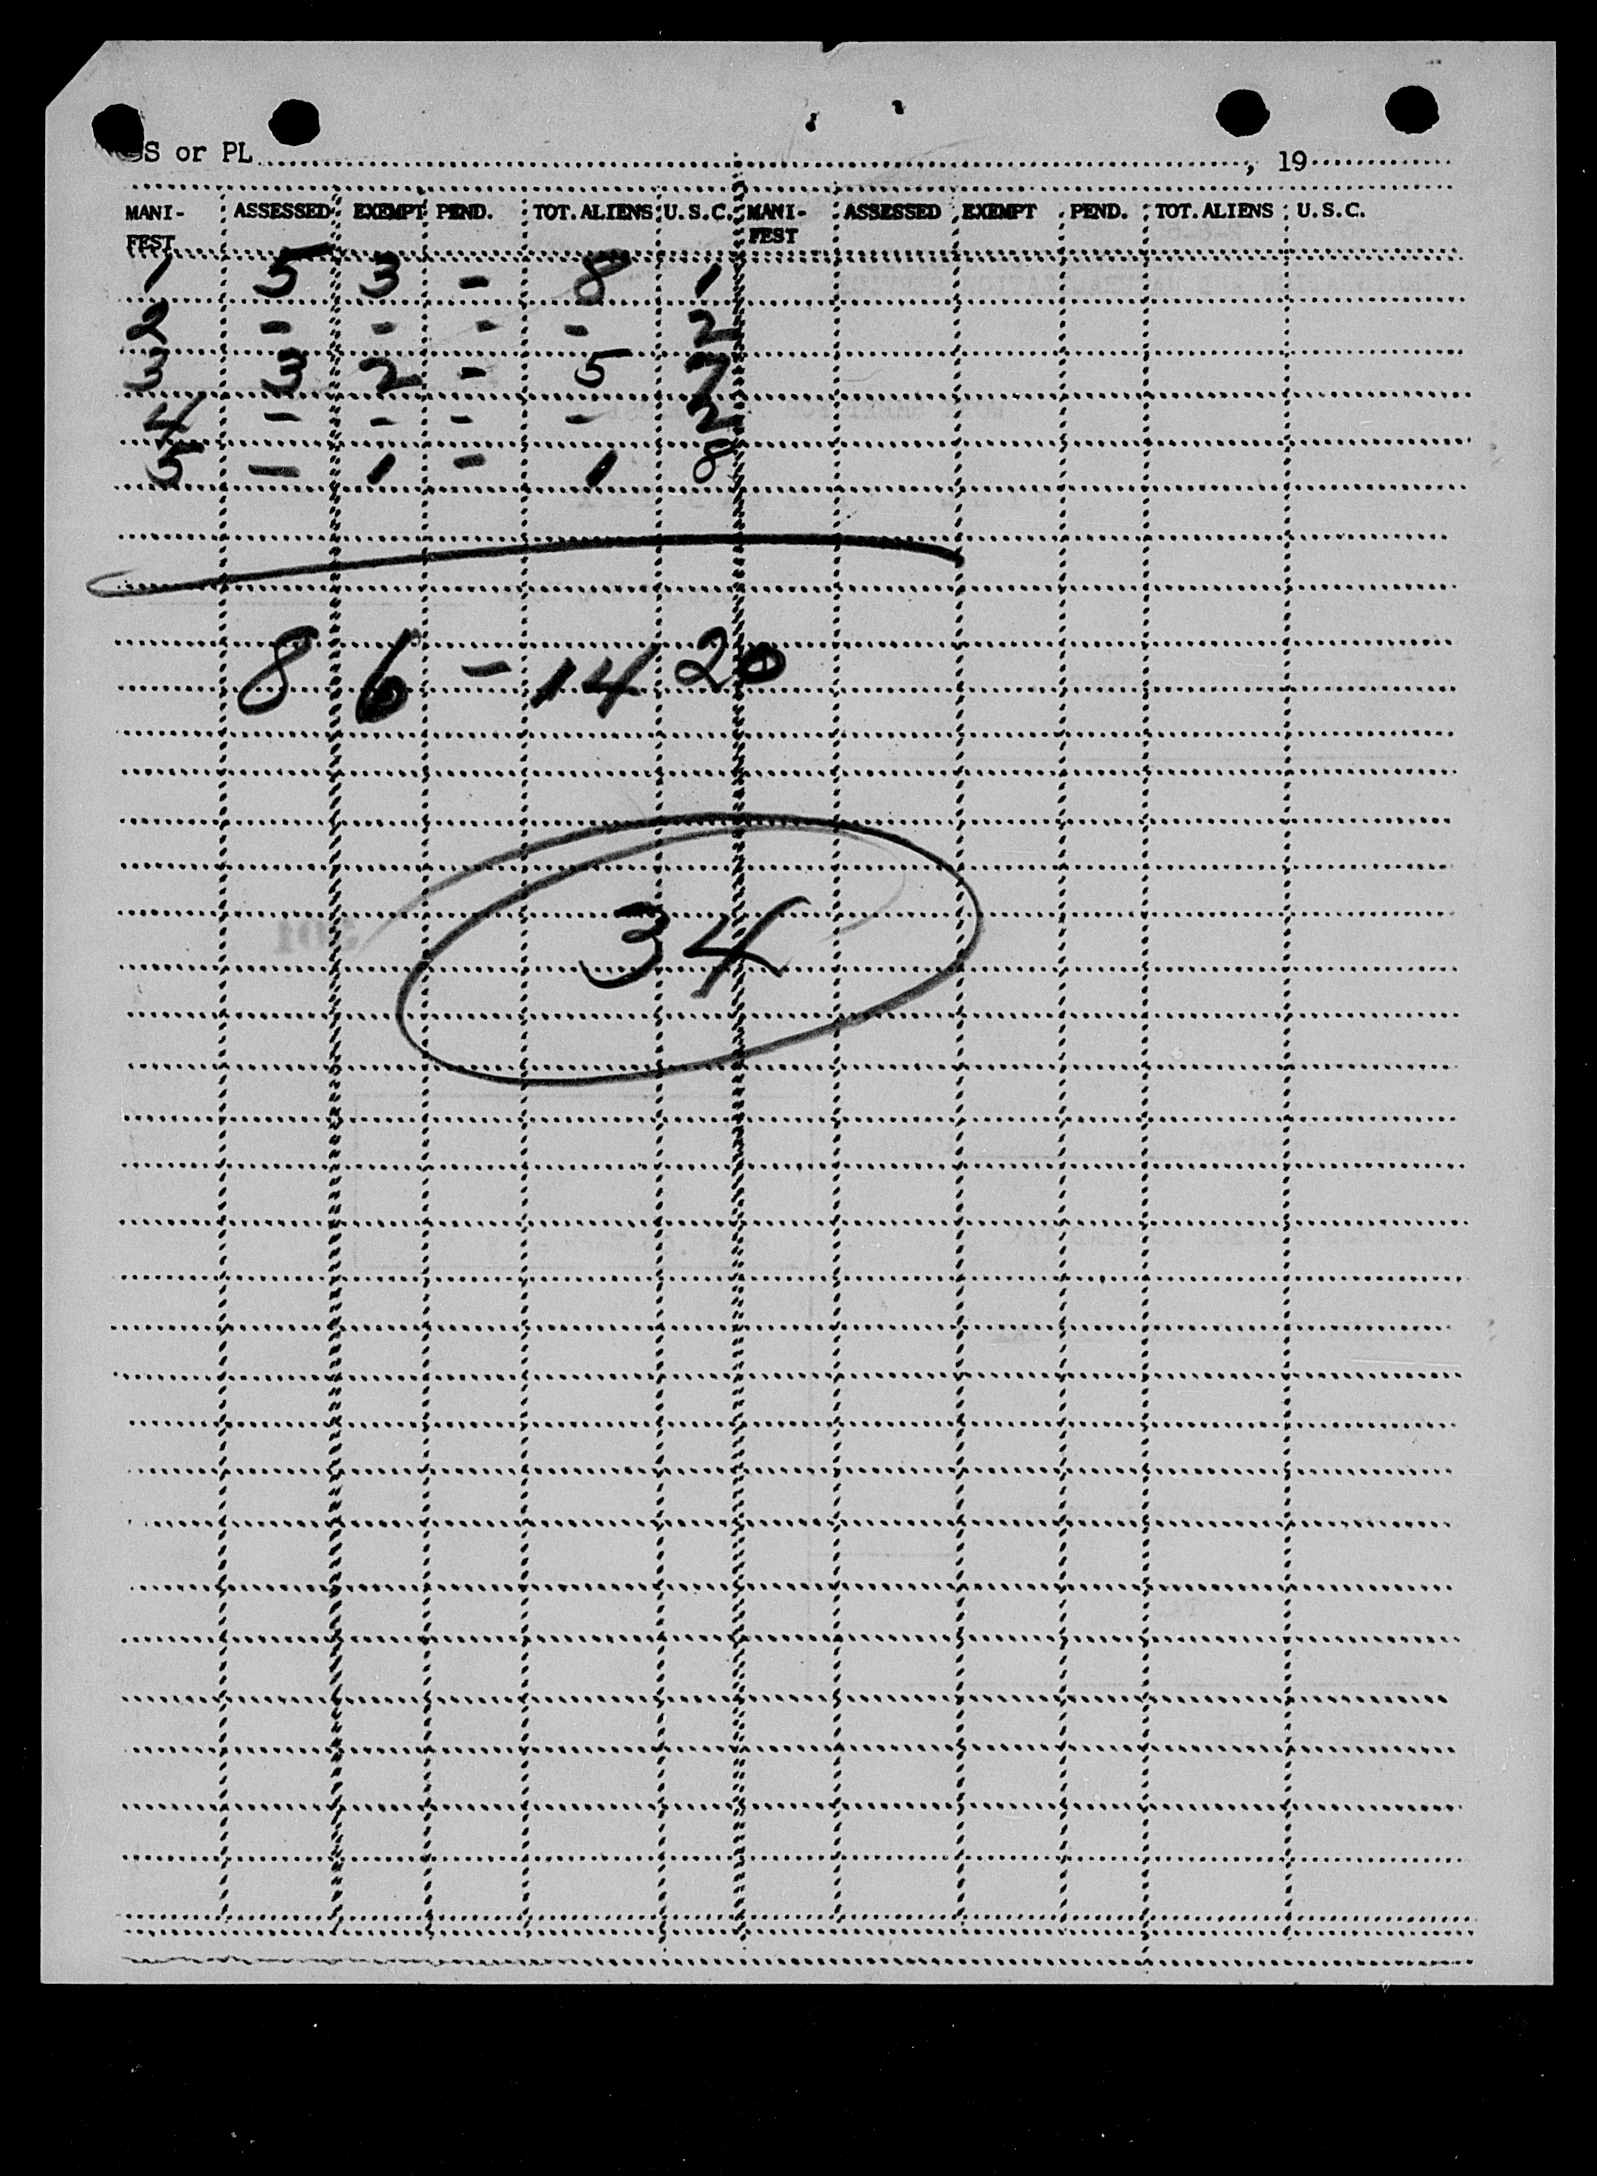 SS or PL , 19
MANI- ASSESSED EXEMPT PEND. TOT. ALIENS U.S.C. MANI- ASSESSED EXEMPT PEND. TOT. ALIENS U.S.C.
FEST FEST
1 5 3 - 8 1
2 - - - - 2
3 3 2 - 5 7
4 - - - - 2
5 - 1 - 1 8
8 6 - 14 20
34